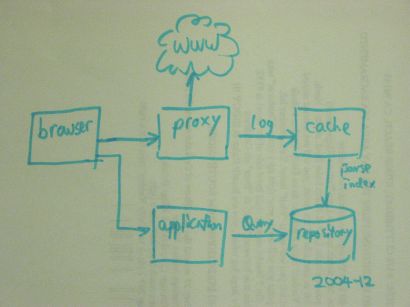 WWW
browser
proxy
log
cache
parse
index
application
Query
repository
2004-12